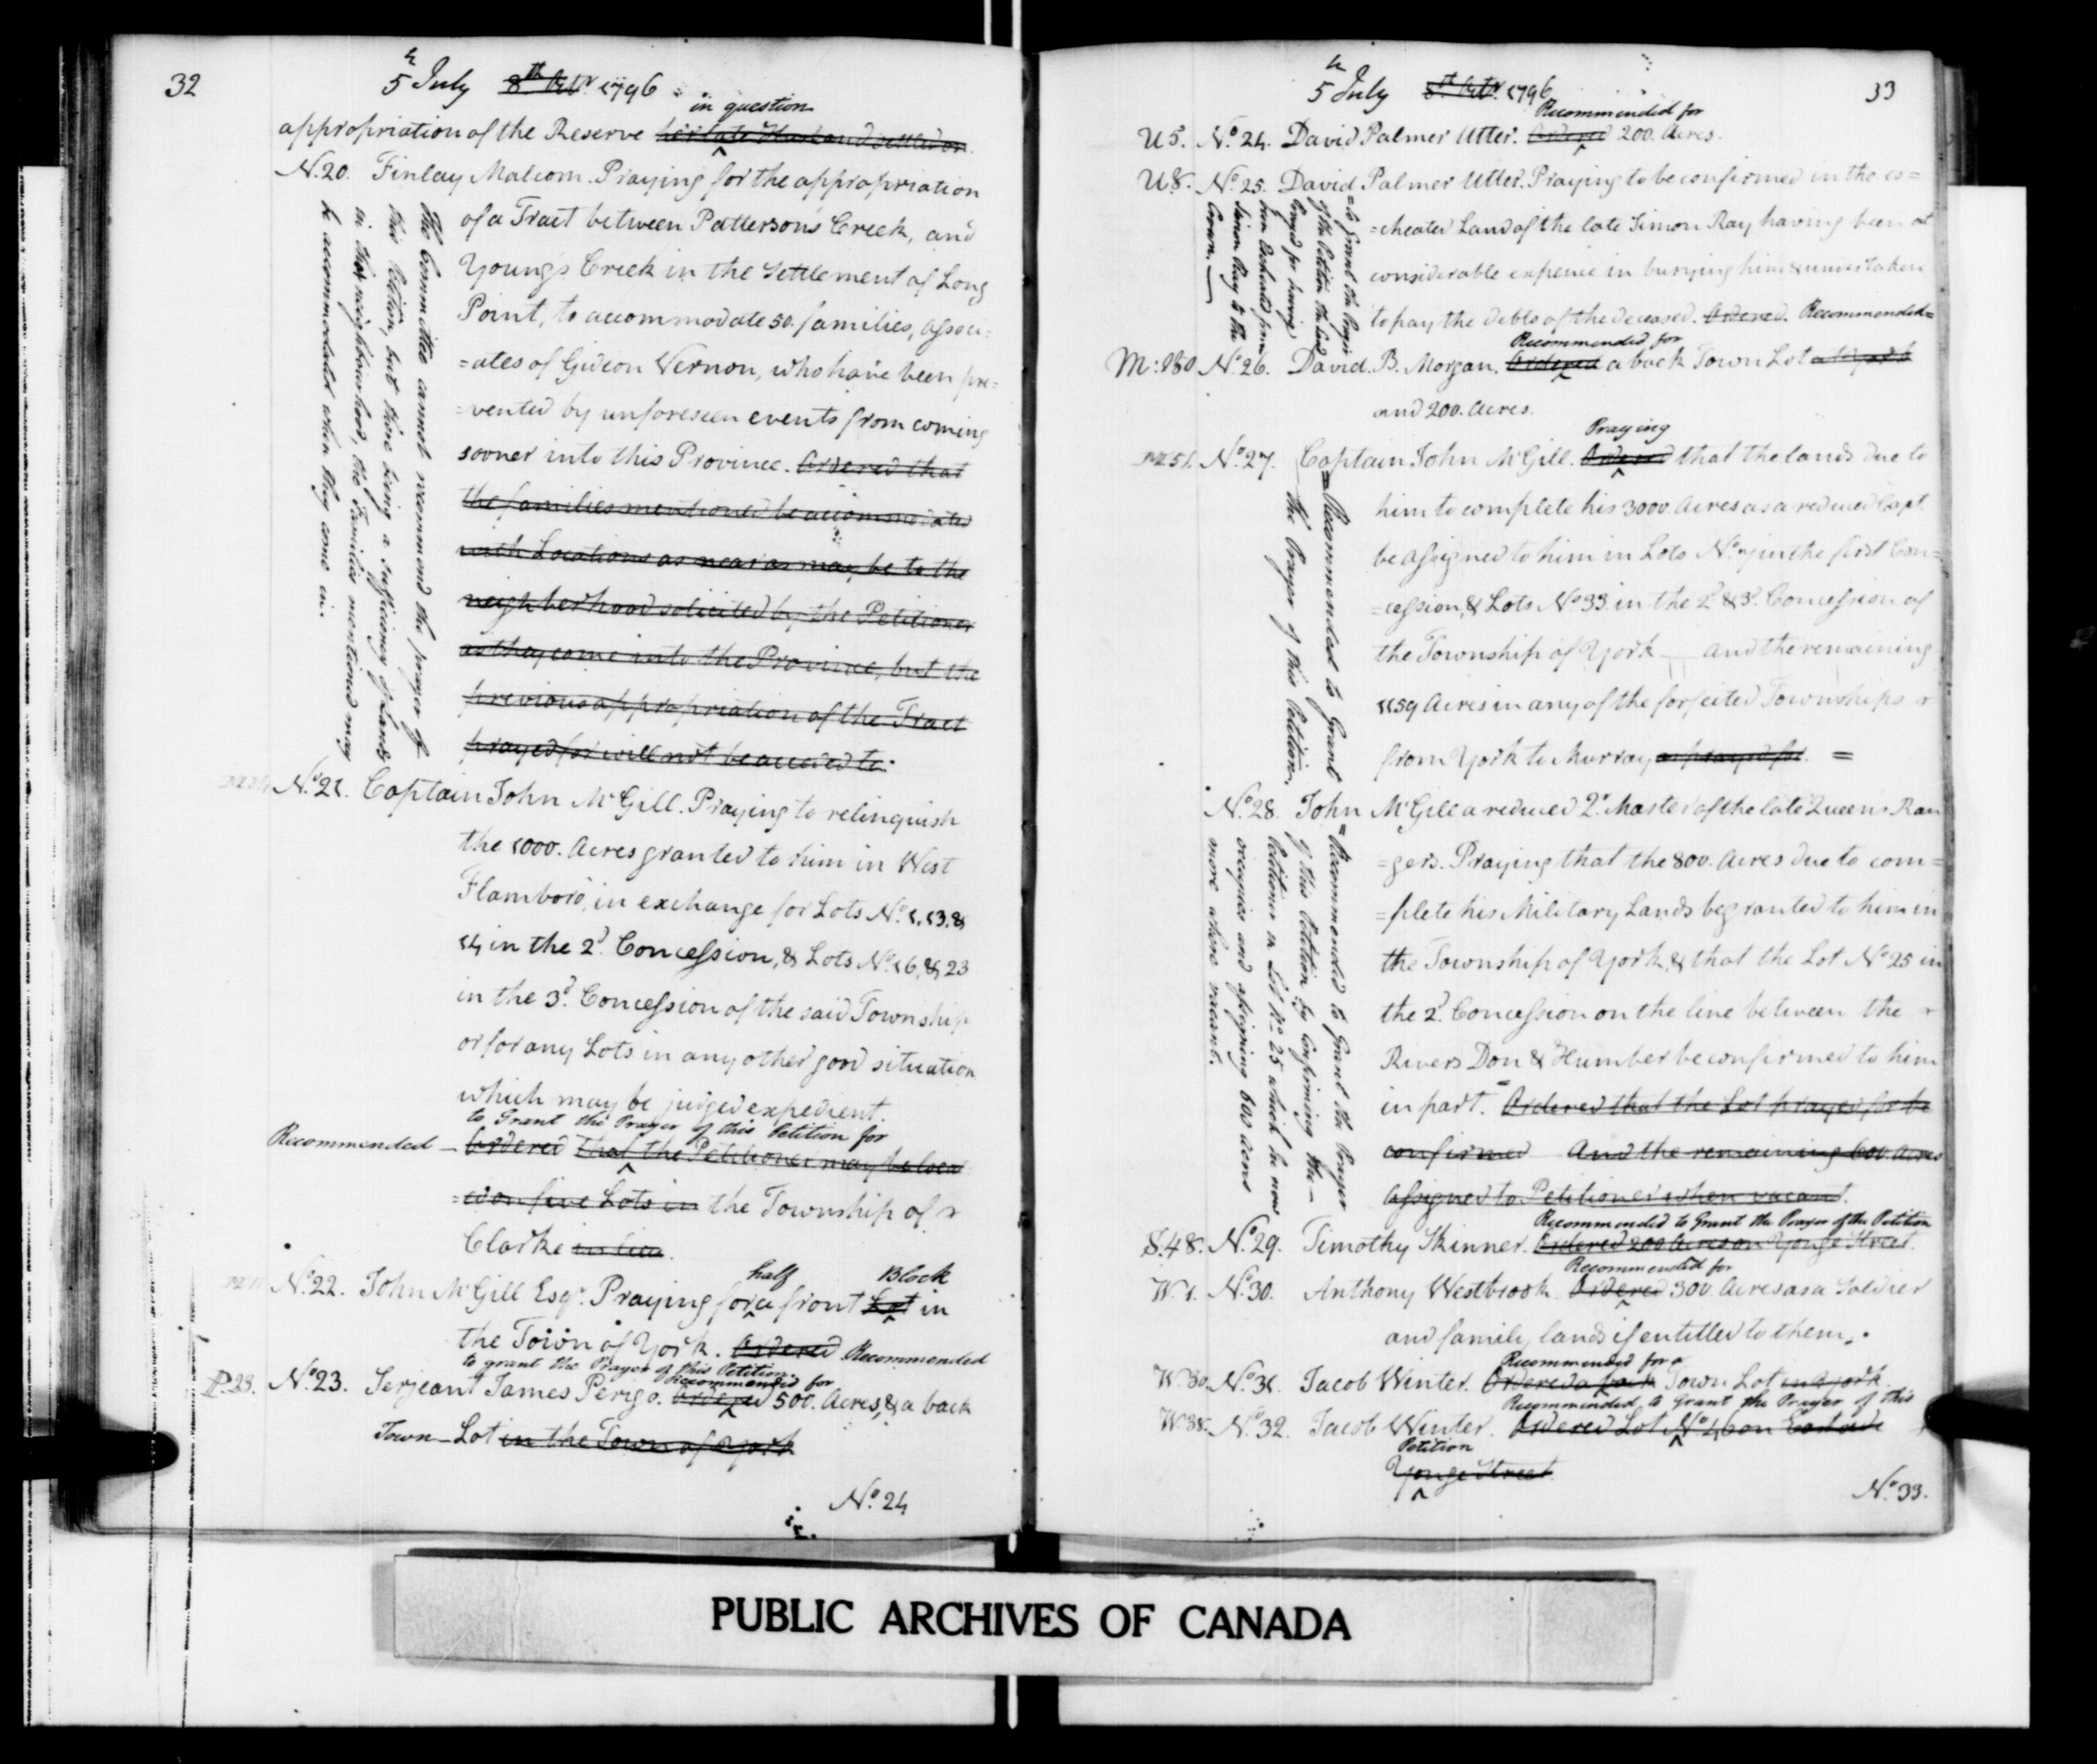 32
5th July 8th Octr. 1796
in question
appropriation of the Reserve her late Husband settled on.
No. 20. Finlay Malcom. Praying for the appropriation
of a Tract between Patterson's Creek, and
Young's Creek in the Settlement of Long
Point, to accommodate 50. families, associ=
=ates of Gideon Vernon, who have been pre=
=vented by unforeseen events from coming
sooner into this Province. Ordered that
the families mentioned be accommodated
with Locations as near as may be to the
neighborhood solicited by the Petitioner
as they come into the Province, but the
previous appropriation of the Tract
prayed for will not be acceded to.
The Committee cannot recommend the prayer of
this Petition, but there being a sufficiency of Lands
in that neighbourhood, the Families mentioned may
be accommodated when they come in.
No. 21. Captain John McGill. Praying to relinquish
the 1000. Acres granted to him in West
Flamboro', in exchange for Lots No. 1. 13. &
14 in the 2d. Concession, & Lots No. 16, & 23
in the 3d. Concession of the said Township
or for any Lots in any other good situation
which may be judged expedient.
to Grant the Prayer of this Petition for
Recommended — Ordered that the Petitioner may be locat
=ed on five Lots in the Township of
Clarke in lieu.
half Block
No. 22. John McGill Esqr. Praying for a front Lot in
the Town of York. Ordered Recommended
to grant the Prayer of this Petition.
Recommended for
P. 23. No. 23. Serjeant James Perigo. Ordered 500. Acres, & a back
Town-Lot in the Town of York
No. 24
33
5th July 8th Octr. 1796
Recommended for
U 5. No. 24. David Palmer Utter. Ordered 200. Acres.
U 8. No. 25. David Palmer Utter. Praying to be confirmed in the es=
=cheated Land of the late Simon Ray having been at
considerable expence in burying him & undertaken
to pay the debts of the deceased. Ordered. Recommended=
=to Grant the Prayer
of the Petition the Land
Prayed for having
been Escheated from
Simon Ray to the
Crown. —
Recommended for
M: 180 No. 26. David. B. Morgan. Ordered a back Town Lot at York
and 200. Acres.
Praying
M 51. No. 27. Captain John McGill. Ordered that the lands due to
him to complete his 3000 Acres as a reduced Capt.
be assigned to him in Lots No. 7 in the first Con=
=cession, & Lots No. 33 in the 2d. & 3d. Concession of
the Township of York — and the remaining
1159 Acres in any of the forfeited Townships
from York to Murray as prayed for. =
=Recommended to Grant
the Prayer of this Petition.
No. 28. John McGill a reduced Qr. Master of the late Queens Ran
=gers. Praying that the 800. Acres due to com=
=plete his Military Lands be granted to him in
the Township of York, & that the Lot No. 25 in
the 2d. Concession on the line between the
Rivers Don & Humber be confirmed to him
in part. = Ordered that the Lot prayed for be
confirmed And the remaining 600. Acres
assigned to Petitioner when vacant.
=Recommended to Grant the Prayer
of this Petition by Confirming the—
Petitioner in Lot No. 25 which he now
occupies and assigning 600 acres
more where vacant.
Recommended to Grant the Prayer of the Petition
S. 48. No. 29. Timothy Skinner. Ordered 200 Acres on Yonge Street.
Recommended for
W. 1. No. 30. Anthony Westbrook. Ordered 300 Acres as a Soldier
and family lands if entitled to them.
Recommended for a
W. 30. No. 31. Jacob Winter. Ordered a back Town Lot in York.
Recommended to Grant the Prayer of this
W 38. No. 32. Jacob Winter. Ordered Lot No. 46 on East side
Petition
Yonge Street
No. 33.
PUBLIC ARCHIVES OF CANADA